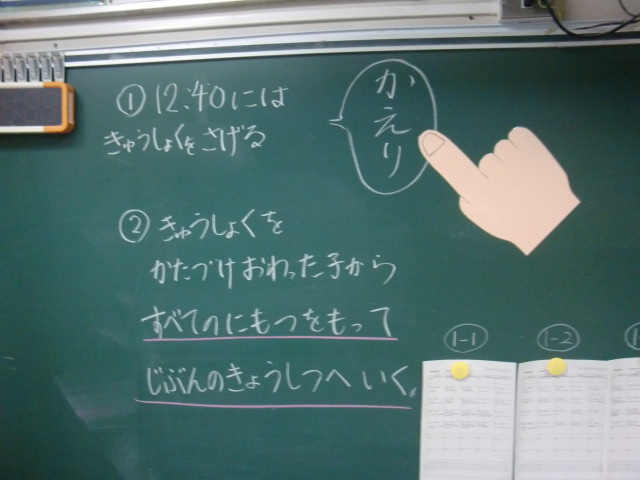 かえり
① 12.40には
きゅうしょくをさげる
② きゅうしょくを
かたづけおわった子から
すべてのにもつをもって
じぶんのきょうしつへいく。
1-1
1-2